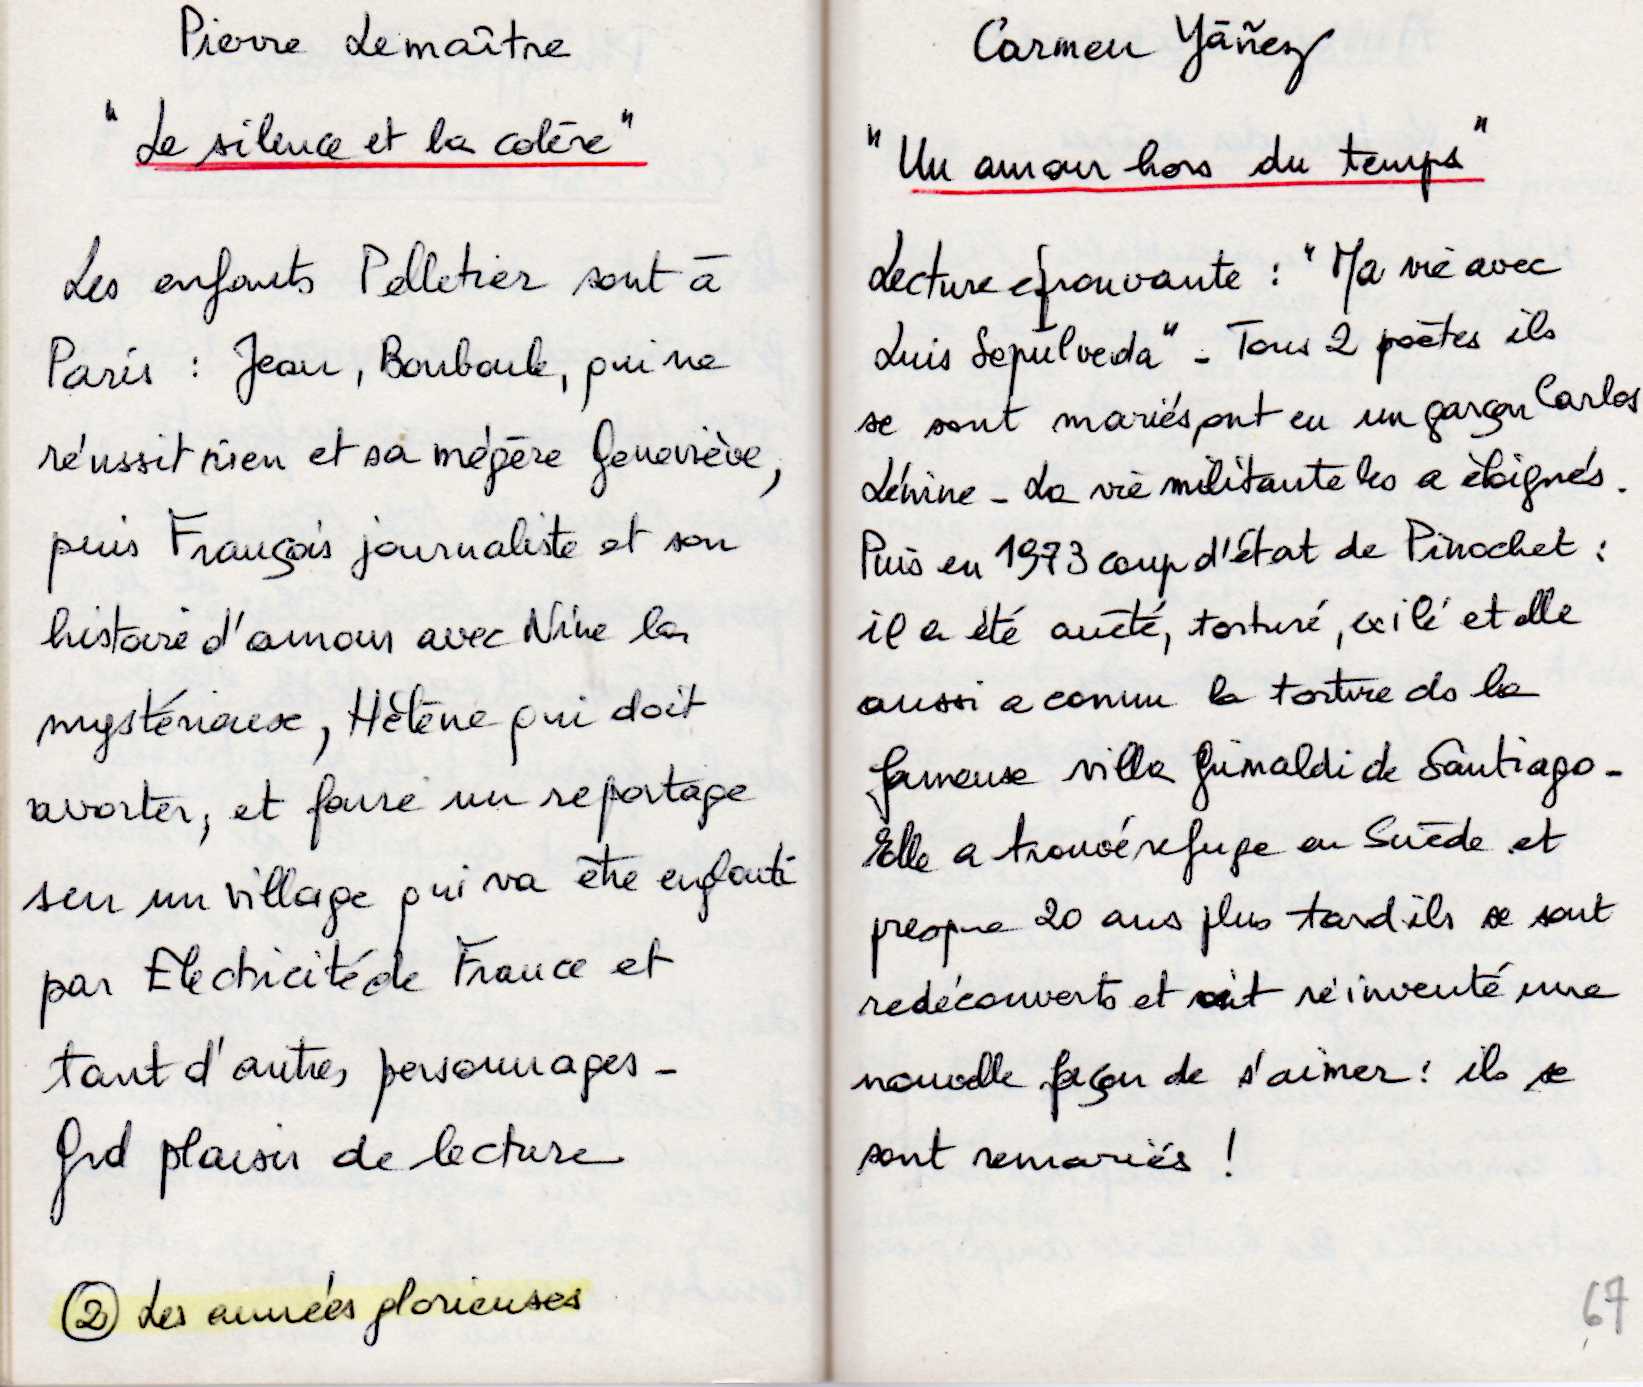 Pierre Lemaître
"Le silence et la colère"
Les enfants Pelletier sont à
Paris : Jean, Bouboule, qui ne
réussit rien et sa mégère Geneviève,
puis François journaliste et son
histoire d'amour avec Nine la
mystérieuse, Hélène qui doit
avorter, et faire un reportage
sur un village qui va être englouti
par Electricité de France et
tant d'autres personnages -
Grd plaisir de lecture
② Les années glorieuses
Carmen Yáñez
"Un amour hors du temps"
Lecture éprouvante : "Ma vie avec
Luis Sepúlveda" - Tous 2 poètes ils
se sont mariés, ont eu un garçon Carlos
Lénine - La vie militante les a éloignés.
Puis en 1973 coup d'état de Pinochet :
il a été arrêté, torturé, exilé et elle
aussi a connu la torture ds la
fameuse villa Grimaldi de Santiago -
Elle a trouvé refuge en Suède et
presque 20 ans plus tard ils se sont
redécouverts et ont réinventé une
nouvelle façon de s'aimer : ils se
sont remariés !
67